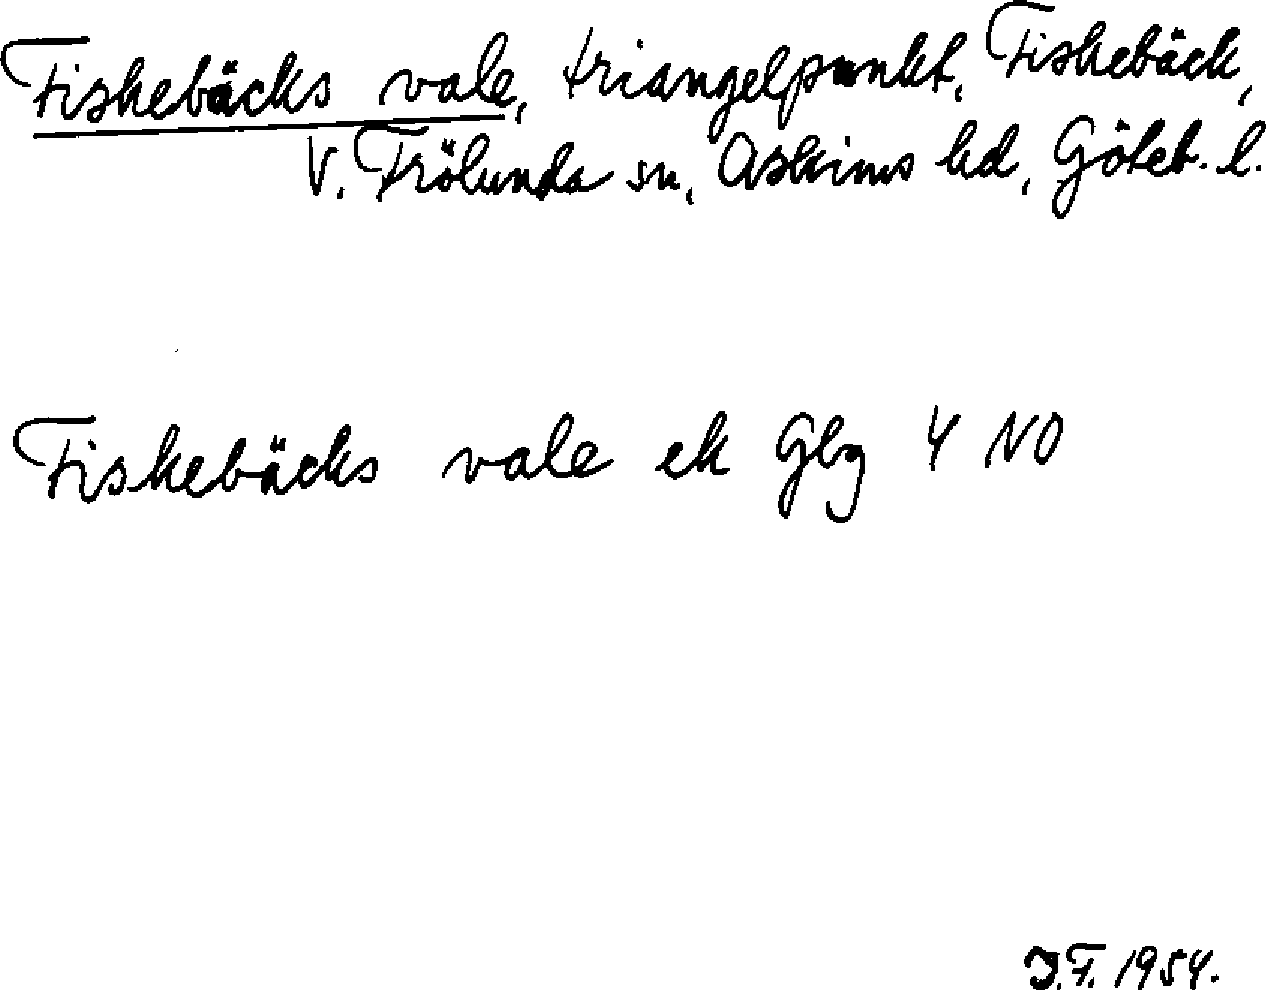 Fiskebäcks vale, triangelpunkt, Fiskebäck,
V. Frölunda sn, Askims hd, Göteb. l.
Fiskebäcks vale ek Gbg 4 NO
J.F. 1954.